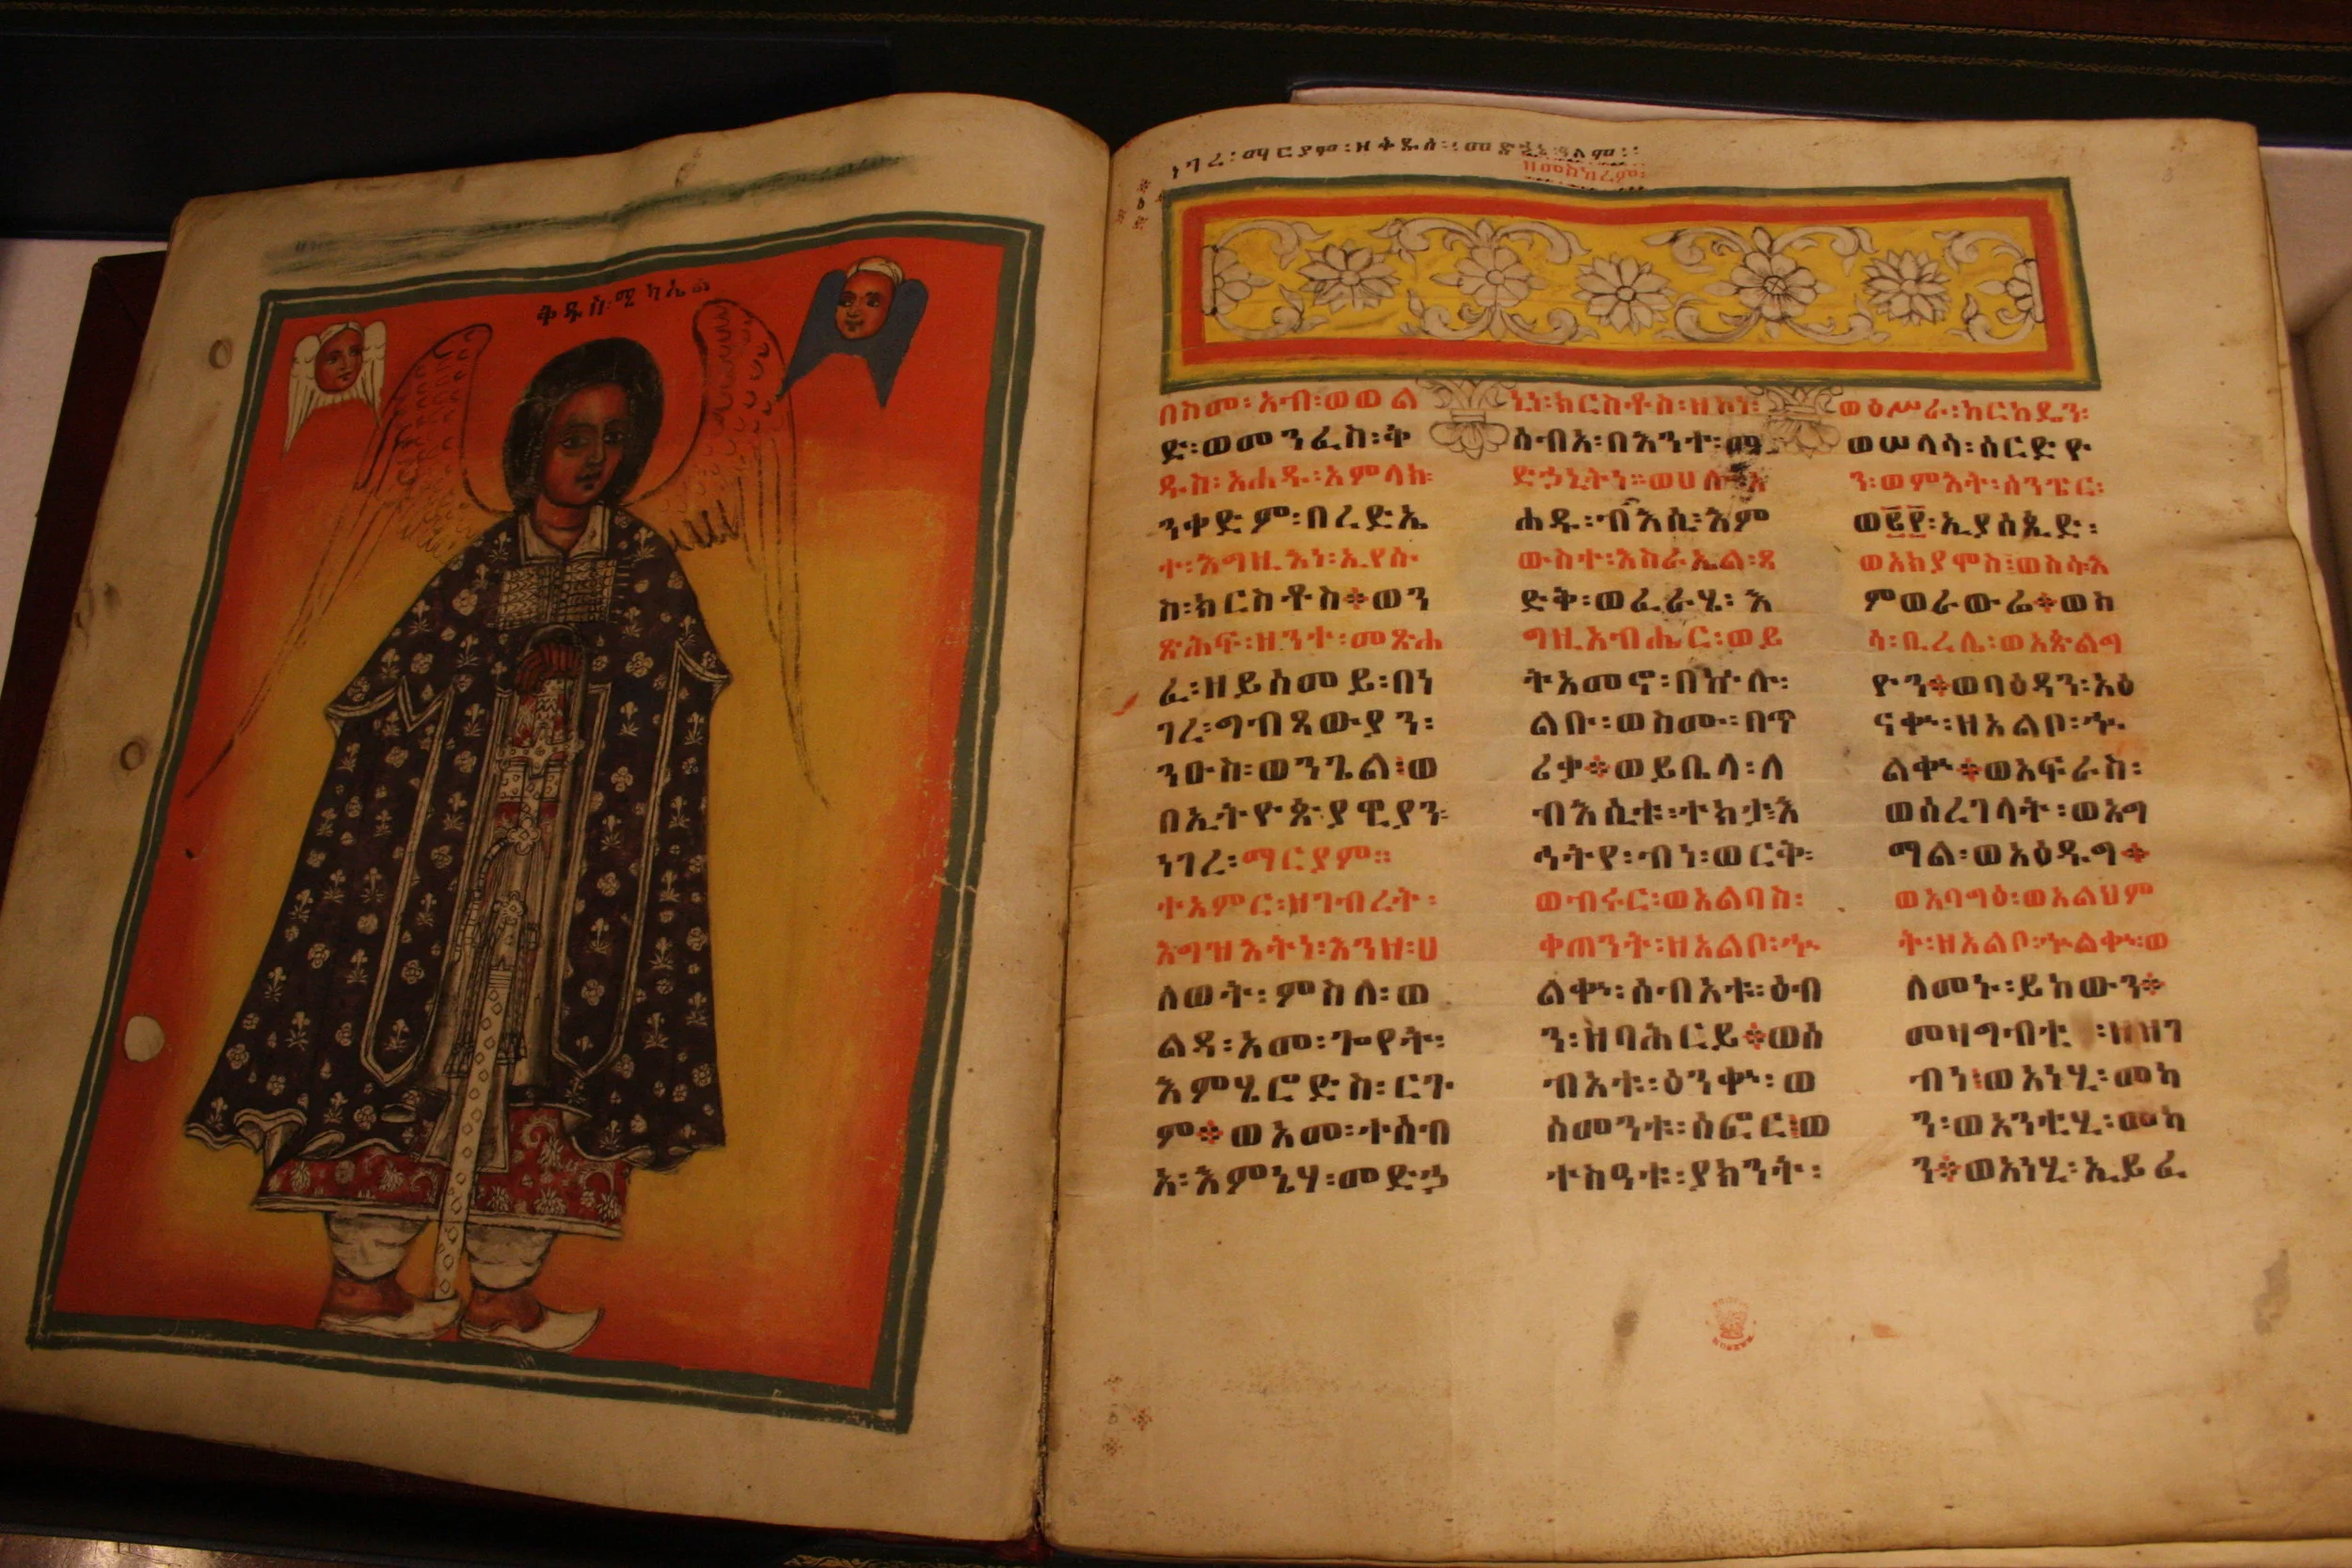 ቅዱስ፡ሚካኤል
ነገረ፡ማርያም፡ዘቅዱስ፡መድኃኔ፡ዓለም፡፡
ዘመስከረም፡
በስመ፡አብ፡ወወል
ድ፡ወመንፈስ፡ቅ
ዱስ፡አሐዱ፡አምላክ፡
ንቀድም፡በረድኤ
ተ፡እግዚእነ፡ኢየሱ
ስ፡ክርስቶስ፨ወን
ጽሕፍ፡ዘንተ፡መጽሐ
ፈ፡ዘይሰመይ፡በነ
ገረ፡ግብጻውያን፡
ንዑስ፡ወንጌል፡ወ
በኢትዮጵያዊያን፡
ነገረ፡ማርያም።
ተአምር፡ዘገብረት፡
እግዝእትነ፡እንዘ፡ሀ
ለወት፡ምስለ፡ወ
ልዳ፡አመ፡ጐየት፡
እምሄሮድስ፡ርጉ
ም፨ወአመ፡ተሰብ
አ፡እምኔሃ፡መድኃ
ኒነ፡ክርስቶስ፡ዘኮነ፡
ሰብአ፡በእንተ፡
ድኃኒትነ።ወሀሎ፡አ
ሐዱ፡ብእሲ፡እም
ውስተ፡እስራኤል፡ጻ
ድቅ፡ወፈራሂ፡እ
ግዚአብሔር፡ወይ
ትአመኖ፡በኵሉ፡
ልቡ፡ወስሙ፡በጥ
ሪቃ፨ወይቤላ፡ለ
ብእሲቱ፡ተክታ፡እ
ኅትየ፡ብነ፡ወርቅ፡
ወብሩር፡ወአልባስ፡
ቀጠንት፡ዘአልቦ፡ኍ
ልቍ፡ሰብአቱ፡ዕብ
ን፡ዘባሕርይ፨ወሰ
ብአቱ፡ዕንቍ፡ወ
ሰመንቱ፡ሰፎር፡ወ
ተስዓቱ፡ያክንት፡
ወዕሥራ፡ከርከዴን፡
ወሠላሳ፡ሰርድዮ
ን፡ወምእት፡ሰንፔር፡
ወ፪፻፡ኢያሰጲድ፡
ወአክያሞስ፡ወስሱእ
ምወራውሬ፨ወከ
ሳ፡ቢረሌ፡ወአጵልግ
ዮን፨ወባዕዳን፡አዕ
ናቍ፡ዘአልቦ፡ኍ
ልቍ፨ወአፍራስ፡
ወሰረገላት፡ወአግ
ማል፡ወአዕዱግ፨
ወአባግዕ፡ወአልህም
ት፡ዘአልቦ፡ኍልቍ፡ወ
ለመኑ፡ይከውን፨
መዛግብቲ፡ዘዝገ
ብነ፡ወአነሂ፡መካ
ን፡ወአንቲሂ፡መካ
ን፨ወአነሂ፡ኢይፈ